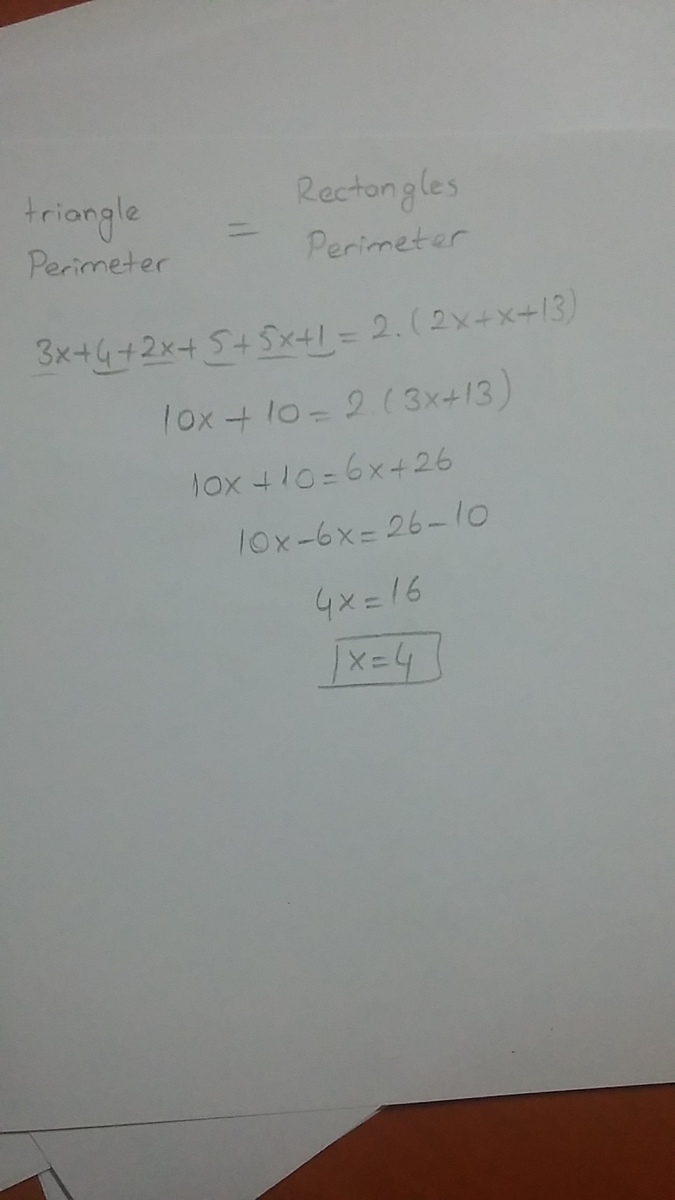 triangle Perimeter = Rectangles Perimeter
3x+4+2x+5+5x+1=2.(2x+x+13)
10x+10=2.(3x+13)
10x+10=6x+26
10x-6x=26-10
4x=16
x=4